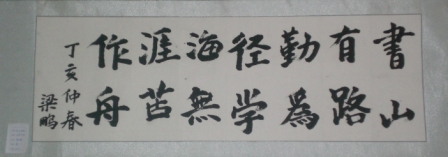 書山
有路
勤為
径学
海無
涯苦
作舟
丁亥仲春
梁鵬